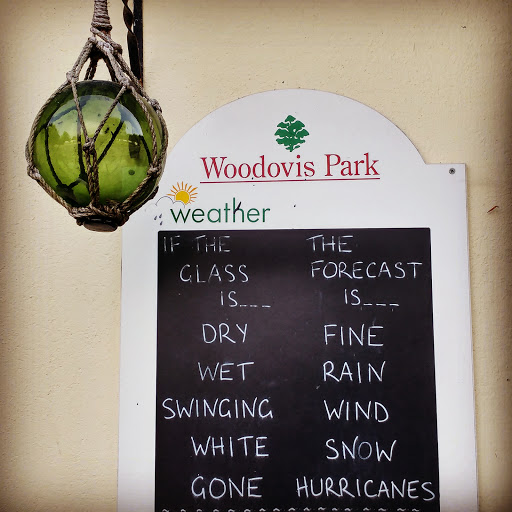 Woodovis Park
weather
IF THE THE
GLASS FORECAST
IS___ IS___
DRY FINE
WET RAIN
SWINGING WIND
WHITE SNOW
GONE HURRICANES